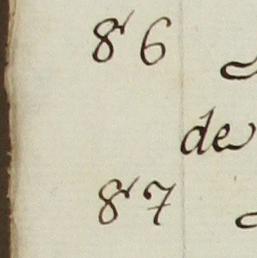 86
de
87